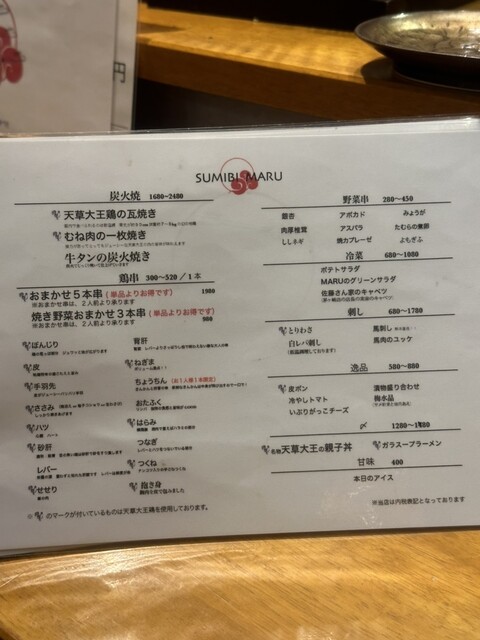 円
SUMIBI MARU
炭火焼 1680~2480
天草大王鶏の瓦焼き
むね肉の一枚焼き
牛タンの炭火焼き
鶏串 300~520 / 1本
おまかせ5本串 (単品よりお得です) 1980
※おまかせ串は、2人前より承ります
焼き野菜おまかせ3本串 (単品よりお得です)
※おまかせ串は、2人前より承ります 980
ぼんじり
皮
手羽先
ささみ
ハツ
砂肝
レバー
せせり
背肝
ねぎま
ちょうちん (お1人様1本限定)
おたふく
はらみ
つなぎ
つくね
抱き身
胸肉を皮で包みました
※ のマークが付いているものは天草大王鶏を使用しております。
野菜串 280~450
銀杏 アボカド みょうが
肉厚椎茸 アスパラ たむらの蓮根
ししネギ 焼カプレーゼ よもぎふ
冷菜 680~1080
ポテトサラダ
MARUのグリーンサラダ
佐藤さん家のキャベツ
刺し 680~1780
とりわさ 馬刺し
白レバ刺し 馬肉のユッケ
(低温調理しております)
逸品 580~880
皮ポン 漬物盛り合わせ
冷やしトマト 梅水晶
いぶりがっこチーズ
〆 1280~1480
名物 天草大王の親子丼 ガラスープラーメン
甘味 400
本日のアイス
※当店は内税表記となっております